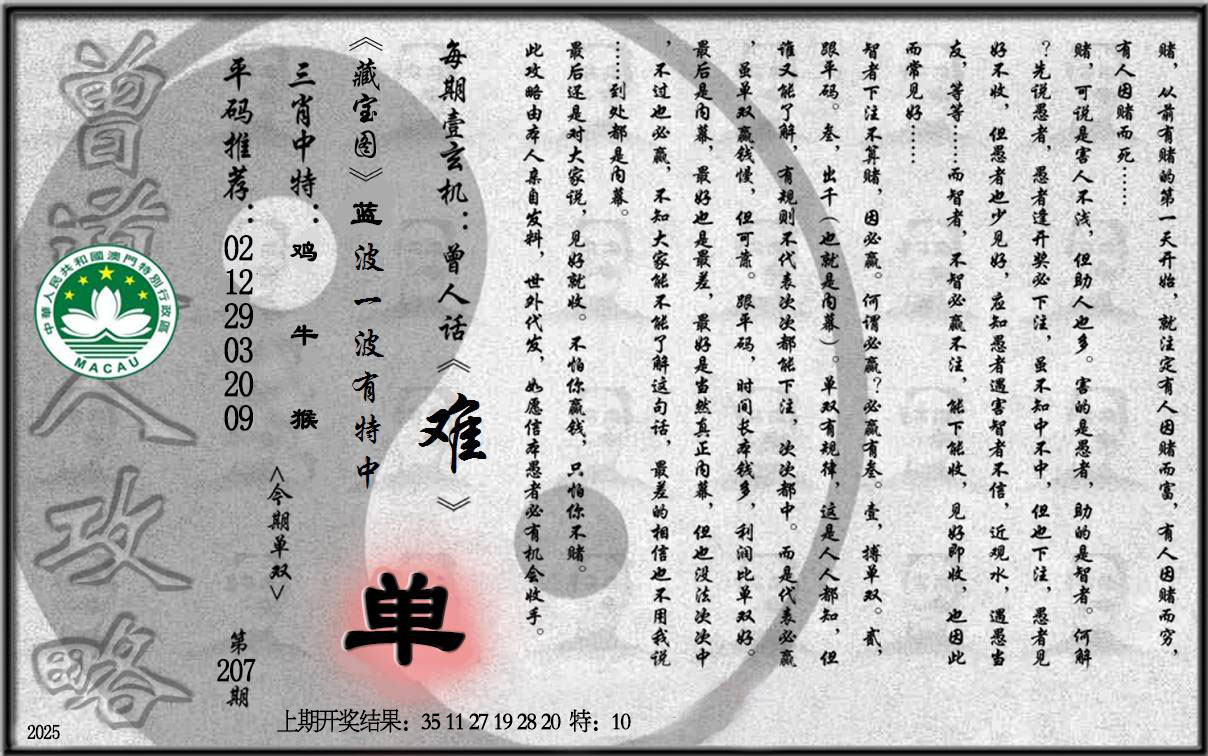 赌，从前有赌的第一天开始，就注定有人因赌而富，有人因赌而穷，
有人因赌而死……
赌，可说是害人不浅，但助人也多。害的是愚者，助的是智者。何解
？先说愚者，愚者逢开奖必下注，虽不知中不中，但也下注，愚者见
好不收，但愚者也少见好，应知愚者遇害智者不信，近观水，遇愚当
友，等等……而智者，不智必赢不注，能下能收，见好即收，也因此
而常见好……
智者下注不算赌，因必赢。何谓必赢？必赢有叁。壹，搏单双。贰，
跟平码。叁，出千（也就是内幕）。单双有规律，这是人人都知，但
谁又能了解，有规则不代表次次都能下注，次次都中。而是代表必赢
，虽单双赢钱慢，但可靠。跟平码，时间长本钱多，利润比单双好。
最后是内幕，最好也是最差，最好是当然真正内幕，但也没法次次中
，不过也必赢，不知大家能不能了解这句话，最差的相信也不用我说
……到处都是内幕。
最后还是对大家说，见好就收。不怕你赢钱，只怕你不赌。
此攻略由本人亲自发料，世外代发，如愿信本愚者必有机会收手。
每期壹玄机：曾人话《难》
《藏宝图》蓝波一波有特中
单
三肖中特：鸡 牛 猴
<今期单双>
平码推荐：02 12 29 03 20 09
第207期
曾道人攻略
中華人民共和國澳門特別行政區
MACAU
上期开奖结果：35 11 27 19 28 20 特：10
2025